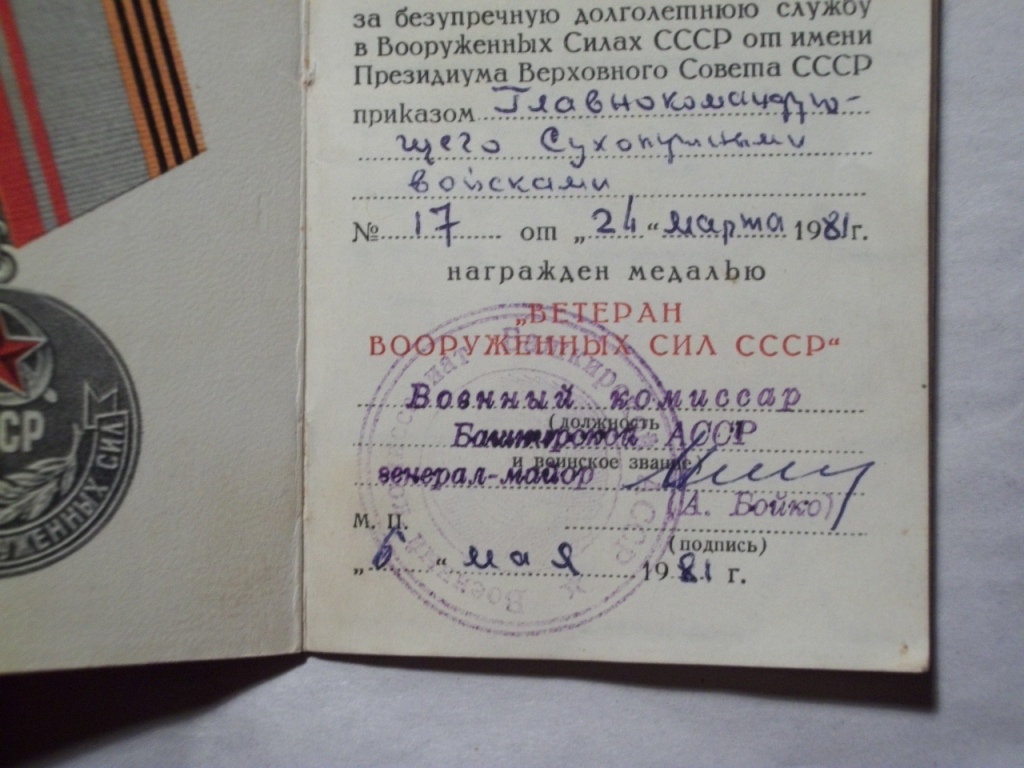 за безупречную долголетнюю службу
в Вооруженных Силах СССР от имени
Президиума Верховного Совета СССР
приказом Главнокомандую-
щего Сухопутными
войсками
№ 17 от „24“ марта 1981 г.
награжден медалью
„ВЕТЕРАН
ВООРУЖЕННЫХ СИЛ СССР“
Военный комиссар
(должность
Башкирской АССР
и воинское звание)
генерал-майор
(А. Бойко)
М. П.
(подпись)
„6“ мая 1981 г.
СР
ЖЕННЫХ СИЛ
Военный комиссариат Башкирской АССР